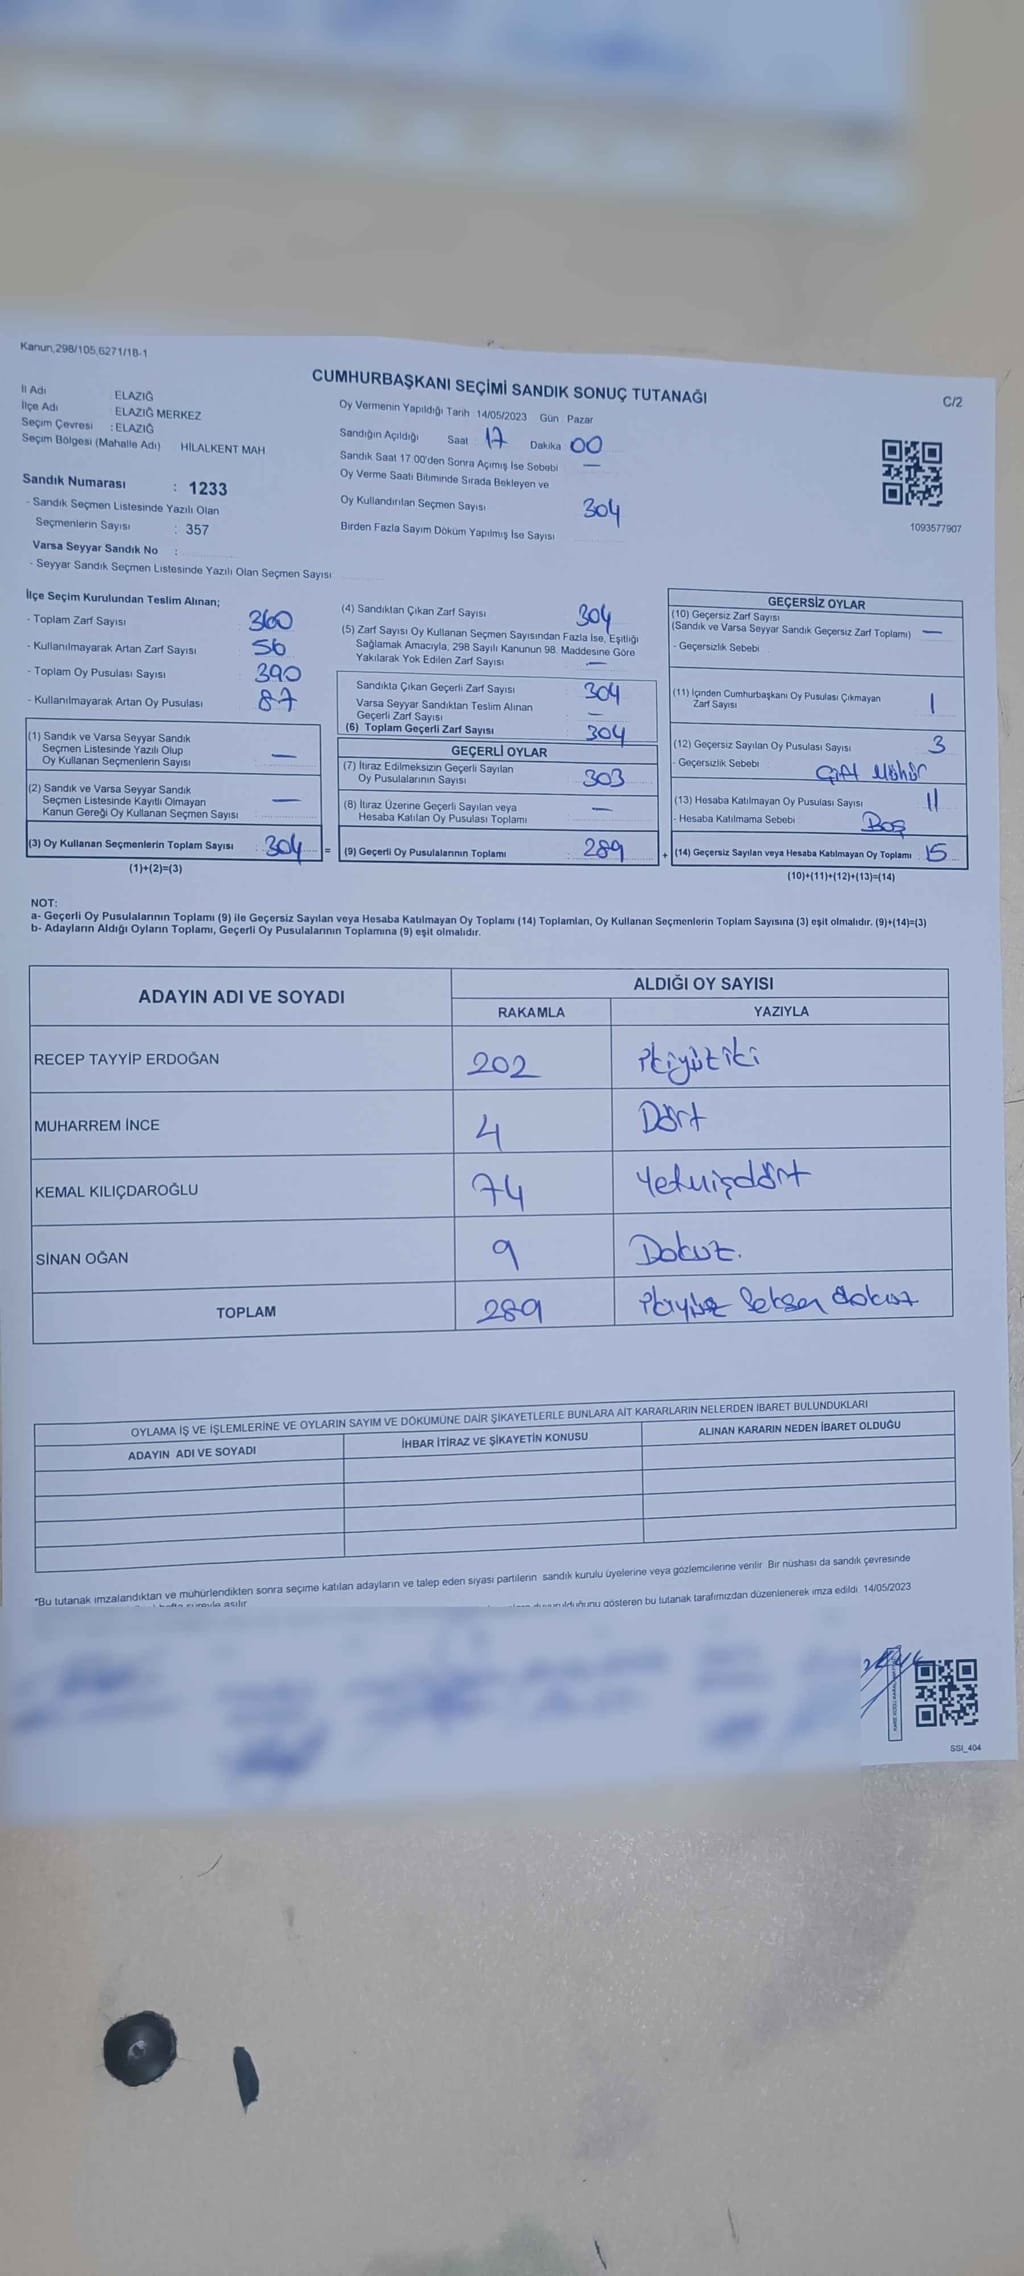 Kanun,298/105,6271/18-1
CUMHURBAŞKANI SEÇİMİ SANDIK SONUÇ TUTANAĞI
C/2
İl Adı ELAZIĞ
İlçe Adı ELAZIĞ MERKEZ
Seçim Çevresi : ELAZIĞ
Seçim Bölgesi (Mahalle Adı) HİLALKENT MAH
Sandık Numarası : 1233
- Sandık Seçmen Listesinde Yazılı Olan
Seçmenlerin Sayısı : 357
Varsa Seyyar Sandık No :
- Seyyar Sandık Seçmen Listesinde Yazılı Olan Seçmen Sayısı
Oy Vermenin Yapıldığı Tarih 14/05/2023 Gün Pazar
Sandığın Açıldığı Saat 17 Dakika 00
Sandık Saat 17 00'den Sonra Açımış İse Sebebi —
Oy Verme Saati Bitiminde Sırada Bekleyen ve
Oy Kullandırılan Seçmen Sayısı 304
Birden Fazla Sayım Döküm Yapılmış İse Sayısı
1093577907
İlçe Seçim Kurulundan Teslim Alınan;
- Toplam Zarf Sayısı 360
- Kullanılmayarak Artan Zarf Sayısı 56
- Toplam Oy Pusulası Sayısı 390
- Kullanılmayarak Artan Oy Pusulası 87
(1) Sandık ve Varsa Seyyar Sandık
Seçmen Listesinde Yazılı Olup
Oy Kullanan Seçmenlerin Sayısı —
(2) Sandık ve Varsa Seyyar Sandık
Seçmen Listesinde Kayıtlı Olmayan
Kanun Gereği Oy Kullanan Seçmen Sayısı —
(3) Oy Kullanan Seçmenlerin Toplam Sayısı : 304 =
(1)+(2)=(3)
(4) Sandıktan Çıkan Zarf Sayısı 304
(5) Zarf Sayısı Oy Kullanan Seçmen Sayısından Fazla İse, Eşitliği
Sağlamak Amacıyla, 298 Sayılı Kanunun 98. Maddesine Göre
Yakılarak Yok Edilen Zarf Sayısı —
Sandıkta Çıkan Geçerli Zarf Sayısı 304
Varsa Seyyar Sandıktan Teslim Alınan
Geçerli Zarf Sayısı —
(6) Toplam Geçerli Zarf Sayısı 304
GEÇERLİ OYLAR
(7) İtiraz Edilmeksizin Geçerli Sayılan
Oy Pusulalarının Sayısı 303
(8) İtiraz Üzerine Geçerli Sayılan veya
Hesaba Katılan Oy Pusulası Toplamı —
(9) Geçerli Oy Pusulalarının Toplamı 289 +
GEÇERSİZ OYLAR
(10) Geçersiz Zarf Sayısı
(Sandık ve Varsa Seyyar Sandık Geçersiz Zarf Toplamı) —
- Geçersizlik Sebebi
(11) İçinden Cumhurbaşkanı Oy Pusulası Çıkmayan
Zarf Sayısı 1
(12) Geçersiz Sayılan Oy Pusulası Sayısı 3
- Geçersizlik Sebebi Çift Mühür
(13) Hesaba Katılmayan Oy Pusulası Sayısı 11
- Hesaba Katılmama Sebebi Boş
(14) Geçersiz Sayılan veya Hesaba Katılmayan Oy Toplamı 15
(10)+(11)+(12)+(13)=(14)
NOT:
a- Geçerli Oy Pusulalarının Toplamı (9) ile Geçersiz Sayılan veya Hesaba Katılmayan Oy Toplamı (14) Toplamları, Oy Kullanan Seçmenlerin Toplam Sayısına (3) eşit olmalıdır. (9)+(14)=(3)
b- Adayların Aldığı Oyların Toplamı, Geçerli Oy Pusulalarının Toplamına (9) eşit olmalıdır.
ADAYIN ADI VE SOYADI
ALDIĞI OY SAYISI
RAKAMLA YAZIYLA
RECEP TAYYİP ERDOĞAN 202 İkiyüziki
MUHARREM İNCE 4 Dört
KEMAL KILIÇDAROĞLU 74 Yetmişdört
SİNAN OĞAN 9 Dokuz.
TOPLAM 289 İkiyüz Seksen dokuz
OYLAMA İŞ VE İŞLEMLERİNE VE OYLARIN SAYIM VE DÖKÜMÜNE DAİR ŞİKAYETLERLE BUNLARA AİT KARARLARIN NELERDEN İBARET BULUNDUKLARI
ADAYIN ADI VE SOYADI İHBAR İTİRAZ VE ŞİKAYETİN KONUSU ALINAN KARARIN NEDEN İBARET OLDUĞU
*Bu tutanak imzalandıktan ve mühürlendikten sonra seçime katılan adayların ve talep eden siyasi partilerin sandık kurulu üyelerine veya gözlemcilerine verilir. Bir nüshası da sandık çevresinde
hafta süreyle asılır duyurulduğunu gösteren bu tutanak tarafımızdan düzenlenerek imza edildi 14/05/2023
SSI_404